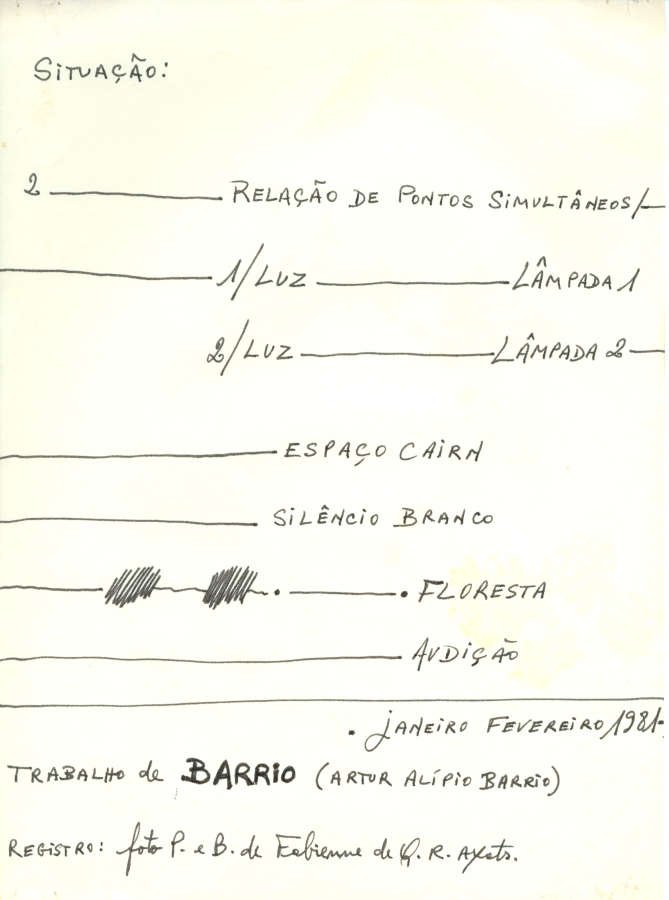 SITUAÇÃO:
2 RELAÇÃO DE PONTOS SIMULTÂNEOS/
1/LUZ LÂMPADA 1
2/LUZ LÂMPADA 2
ESPAÇO CAIRN
SILÊNCIO BRANCO
. . FLORESTA
AUDIÇÃO
. JANEIRO FEVEREIRO 1981.
TRABALHO de BARRIO (ARTUR ALÍPIO BARRIO)
REGISTRO: foto P. e B. de Fabienne de